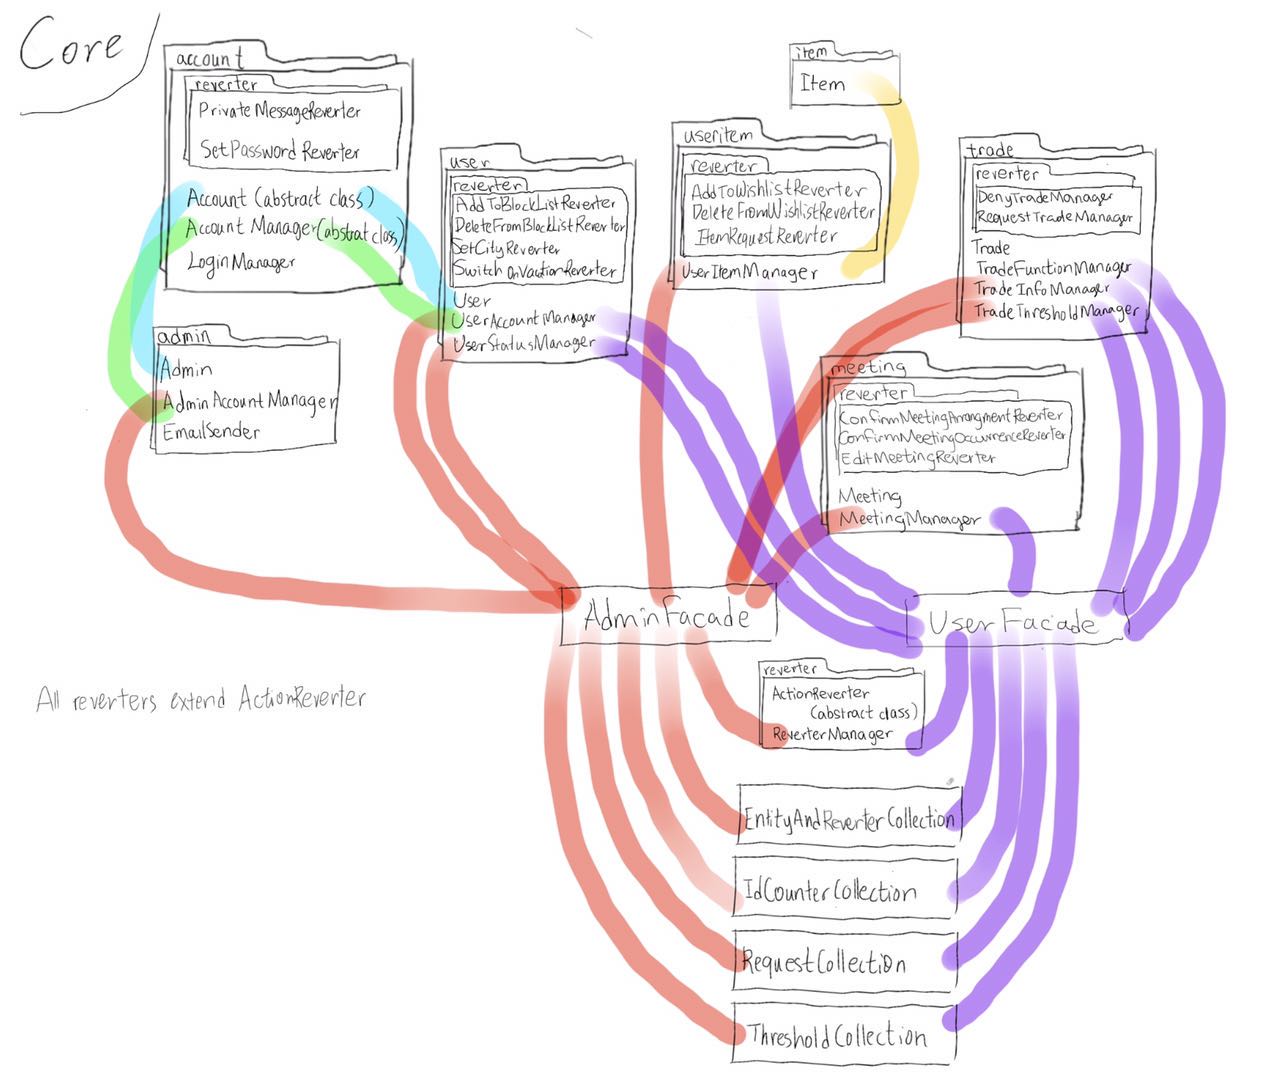 Core
account
reverter
PrivateMessageReverter
SetPassword Reverter
Account (abstract class)
Account Manager(abstrat class)
LoginManager
admin
Admin
Admin Account Manager
EmailSender
user
reverter
AddToBlockListReverter
DeleteFromBlockListReverter
SetCityReverter
Switch OnVacationReverter
User
UserAccountManager
UserStatusManager
item
Item
useritem
reverter
AddToWishlistReverter
DeleteFromWishlistReverter
ItemRequestReverter
UserItemManager
trade
reverter
DenyTradeManager
RequestTradeManager
Trade
TradeFunctionManager
TradeInfoManager
TradeThresholdManager
meeting
reverter
ConfirmMeetingArrangmentReverter
ConfirmMeetingOccurrenceReverter
EditMeetingReverter
Meeting
MeetingManager
AdminFacade
UserFacade
reverter
ActionReverter
(abstract class)
ReverterManager
All reverters extend ActionReverter
EntityAndReverterCollection
IdCounterCollection
RequestCollection
ThresholdCollection